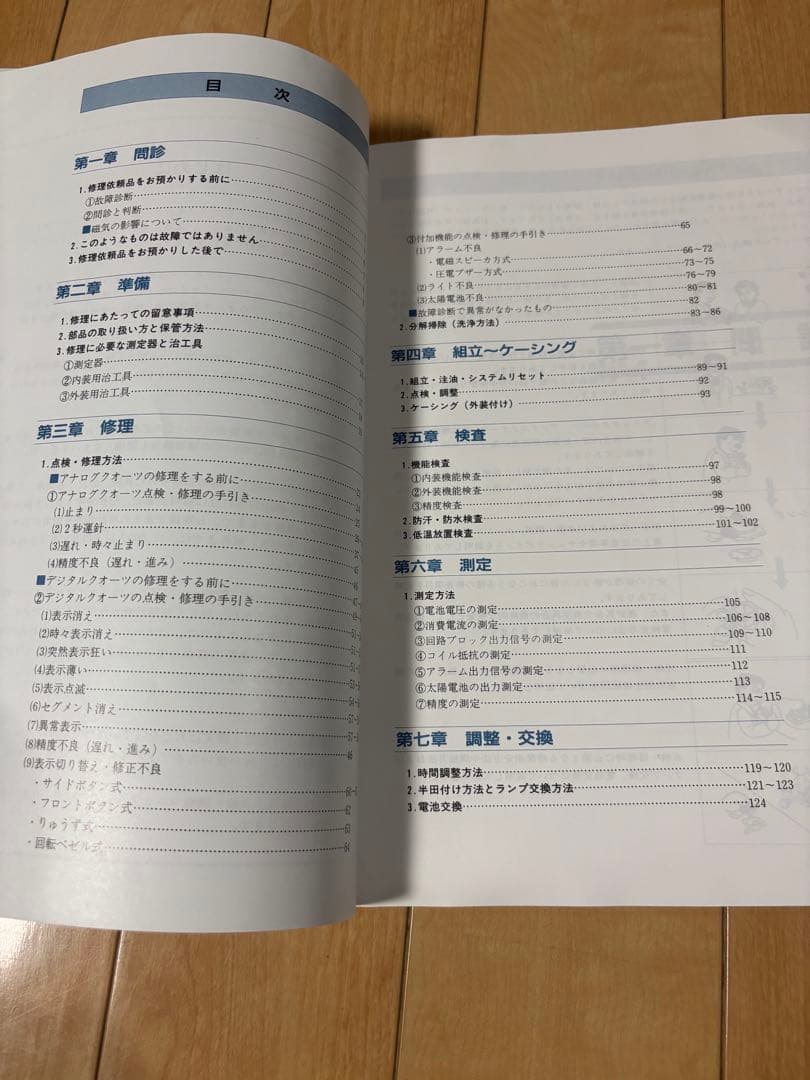 目　次
第一章　問診
1.修理依頼品をお預かりする前に
①故障診断
②問診と判断
■磁気の影響について
2.このようなものは故障ではありません
3.修理依頼品をお預かりした後で
第二章　準備
1.修理にあたっての留意事項
2.部品の取り扱い方と保管方法
3.修理に必要な測定器と治工具
①測定器
②内装用治工具
③外装用治工具
第三章　修理
1.点検・修理方法
■アナログクオーツの修理をする前に
①アナログクオーツ点検・修理の手引き
(1)止まり
(2)2秒運針
(3)遅れ・時々止まり
(4)精度不良（遅れ・進み）
■デジタルクオーツの修理をする前に
②デジタルクオーツの点検・修理の手引き
(1)表示消え
(2)時々表示消え
(3)突然表示狂い
(4)表示薄い
(5)表示点滅
(6)セグメント消え
(7)異常表示
(8)精度不良（遅れ・進み）……46
(9)表示切り替え・修正不良
・サイドボタン式
・フロントボタン式……62
・りゅうず式……63
・回転ベゼル式……64
③付加機能の点検・修理の手引き……65
(1)アラーム不良
・電磁スピーカ方式……66～72
・圧電ブザー方式……73～75
(2)ライト不良……76～79
(3)太陽電池不良……80～81
■故障診断で異常がなかったもの……82
2.分解掃除（洗浄方法）……83～86
第四章　組立～ケーシング
1.組立・注油・システムリセット……89～91
2.点検・調整……92
3.ケーシング（外装付け）……93
第五章　検査
1.機能検査
①内装機能検査……97
②外装機能検査……98
③精度検査……98
2.防汗・防水検査……99～100
3.低温放置検査……101～102
第六章　測定
1.測定方法
①電池電圧の測定……105
②消費電流の測定……106～108
③回路ブロック出力信号の測定……109～110
④コイル抵抗の測定……111
⑤アラーム出力信号の測定……112
⑥太陽電池の出力測定……113
⑦精度の測定……114～115
第七章　調整・交換
1.時間調整方法……119～120
2.半田付け方法とランプ交換方法……121～123
3.電池交換……124